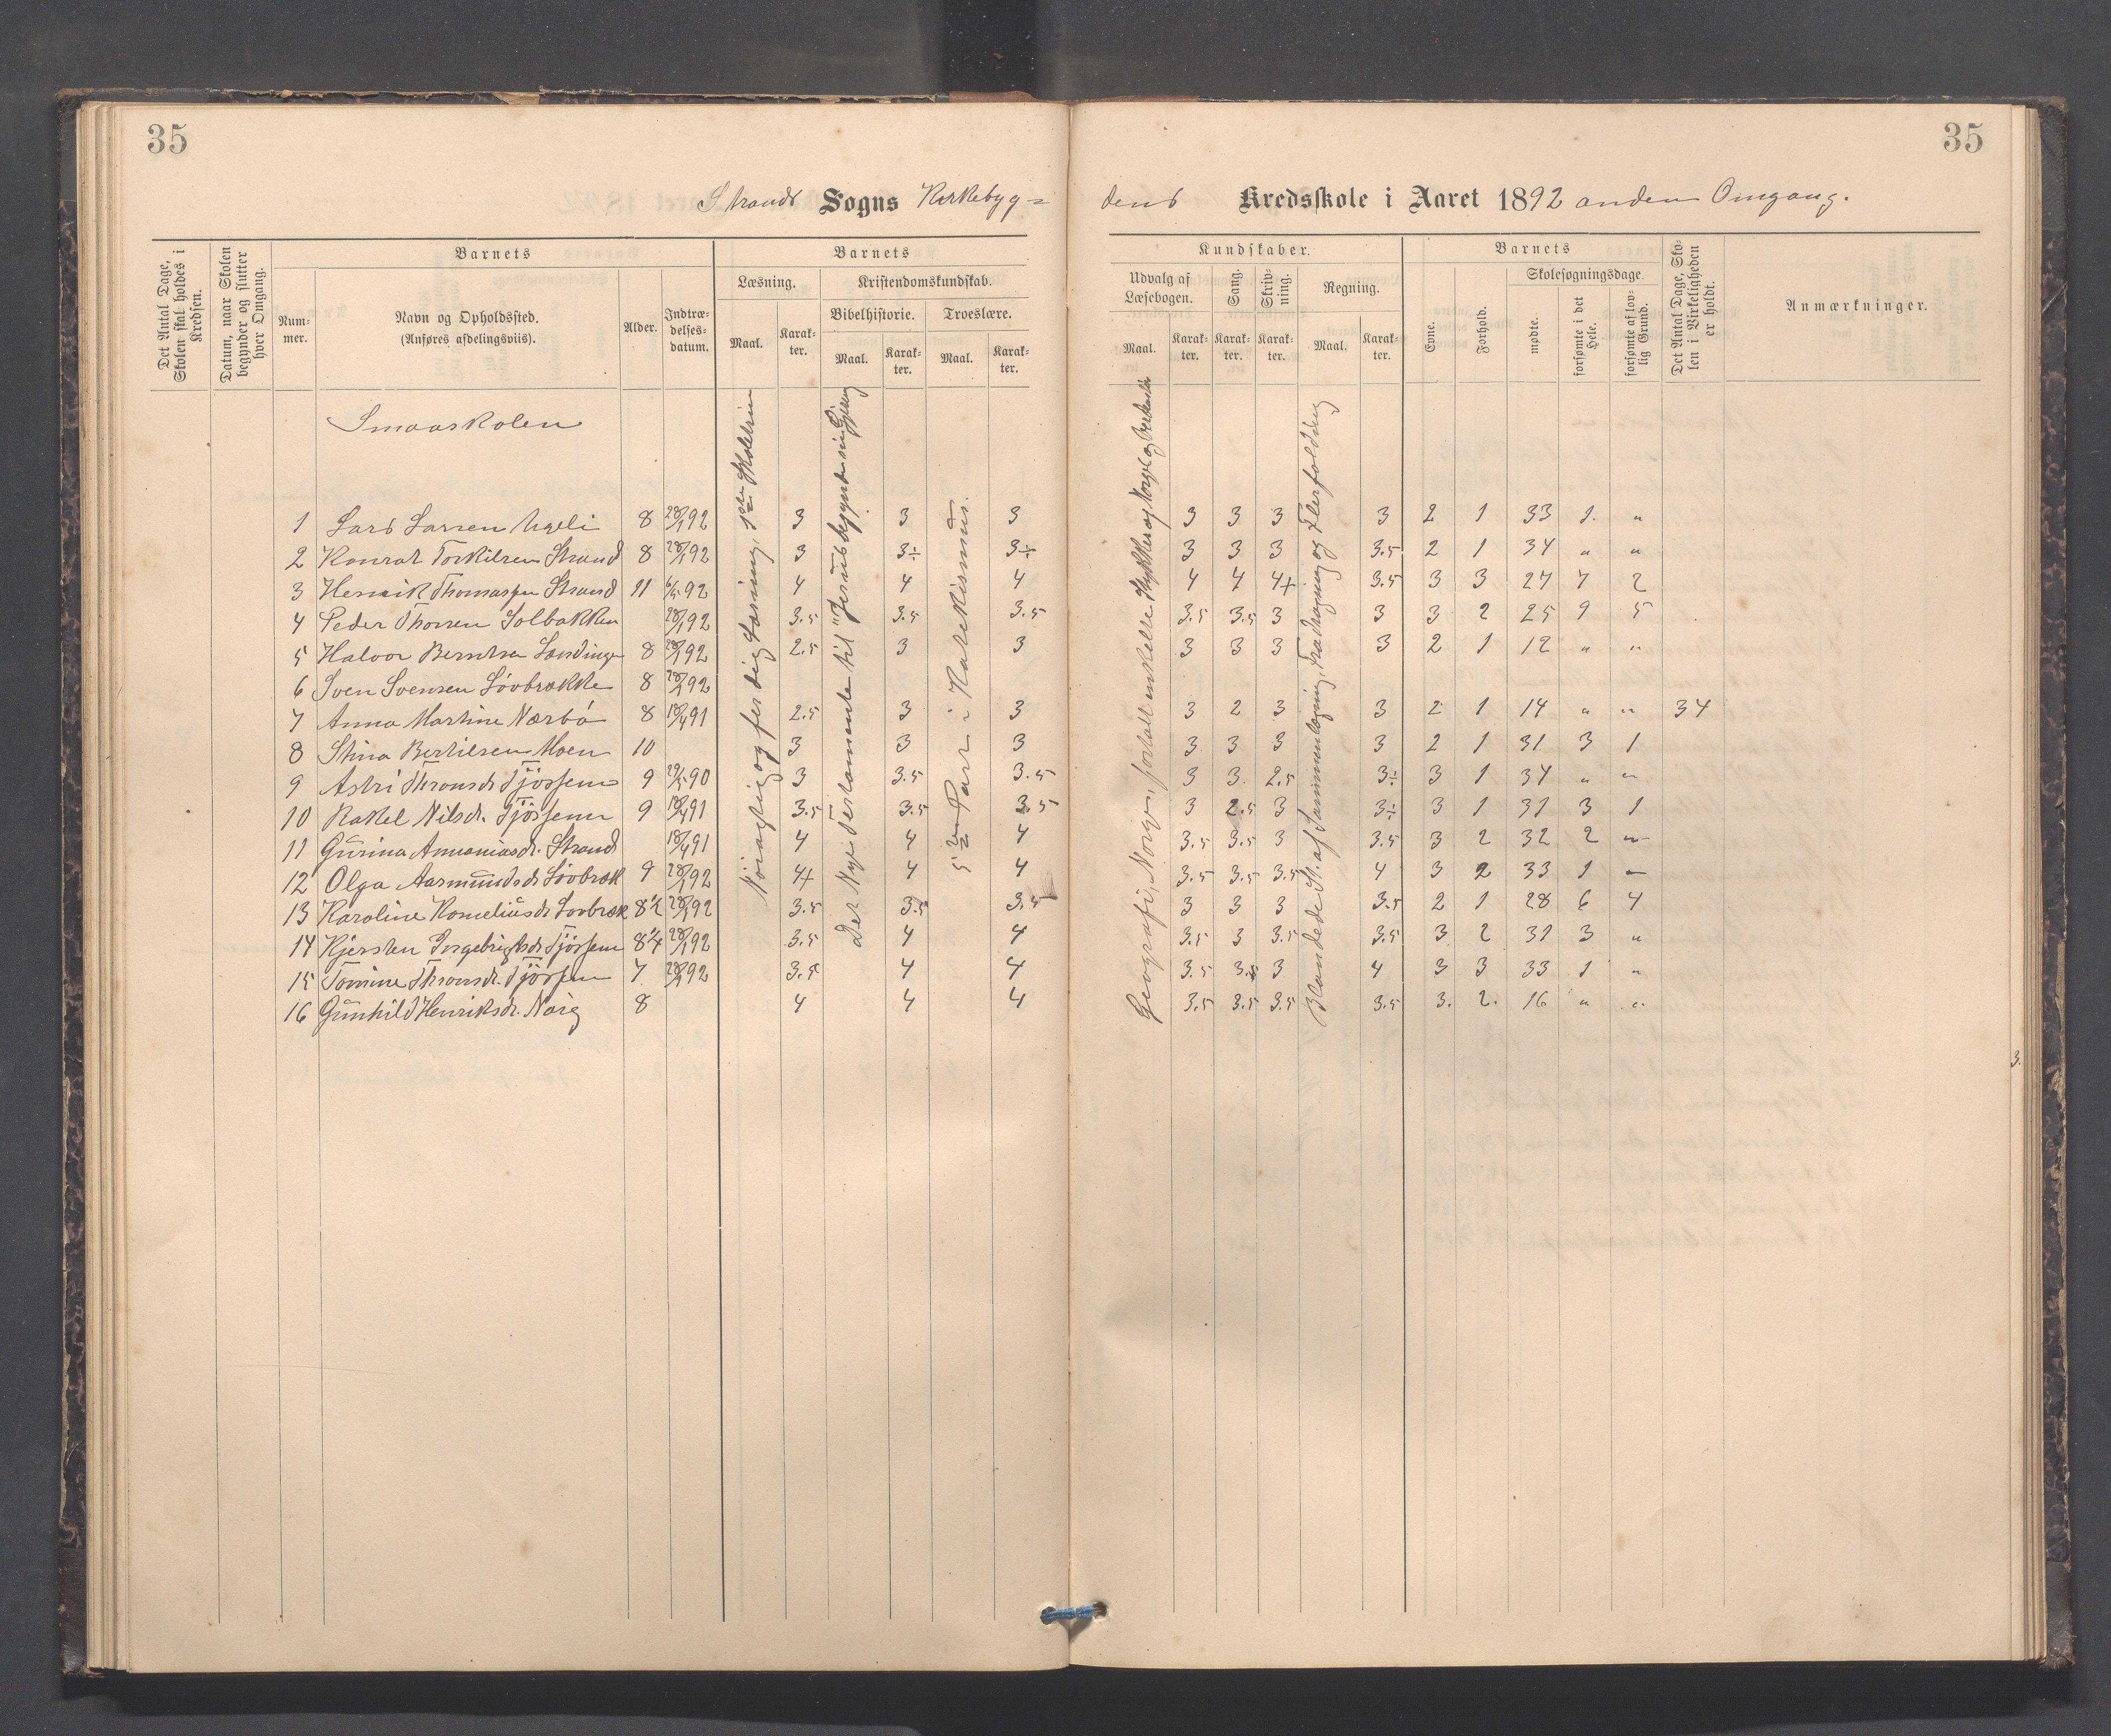 35
35
Strands Sogns Kirkebyg=
dens Kredsskole i Aaret 1892 anden Omgang.
Det Antal Dage, Skolen skal holdes i Kredsen.
Datum, naar Skolen begynder og slutter hver Omgang.
Barnets
Num-mer.
Navn og Opholdssted.
(Anføres afdelingsviis).
Alder.
Indtræ-delses-datum.
Barnets
Læsning.
Maal.
Karak-ter.
Kristendomskundskab.
Bibelhistorie.
Maal.
Karak-ter.
Troeslære.
Maal.
Karak-ter.
Kundskaber.
Udvalg af Læsebogen.
Maal.
Karak-ter.
Sang.
Karak-ter.
Skriv-ning.
Karak-ter.
Regning.
Maal.
Karak-ter.
Barnets
Evne.
Forhold.
Skolesøgningsdage.
mødte.
forsømte i det Hele.
forsømte af lov-lig Grund.
Det Antal Dage, Sko-len i Virkeligheden er holdt.
Anmærkninger.
Smaaskolen
Nöiagtig og ferdig Læsning, 1ste Skoletrin
Det Nye Testamente til "Jesus begynder sin Gjerning
5te Part i Katekismus.
Geografi, Norge, fortalt enkelte Stykker af Norges
Blandede St. af Sammenlægning, Fradragning og Flerfoldning
1 Lars Larsen Ugeli 8 28/1 92 3 3 3 3 3 3 3 2 1 33 1. "
2 Konrat Torkilsen Strand 8 28/1 92 3 3÷ 3÷ 3 3 3 3.5 2 1 34 " "
3 Henrik Thomassen Strand 11 6/5 92 4 4 4 4 4 4+ 3.5 3 3 27 7 2
4 Peder Thorsen Solbakken 28/1 92 3.5 3.5 3.5 3.5 3.5 3 3 3 2 25 9 5
5 Halvor Berntsen 8 28/1 92 2.5 3 3 3 3 3 3 2 1 12 " "
6 Sven Svensen Lövbrække 8 28/1 92
7 Anna Martine Nærbö 8 18/4 91 2.5 3 3 3 2 3 3 2 1 14 " " 34
8 Stina Bertilsen Moen 10 3 3 3 3 3 3 3 2 1 31 3 1
9 Astri Thronsdr. Tjössem 9 29/5 90 3 3.5 3.5 3 3. 2.5 3÷ 3 1 34 " "
10 Rakel Nilsdr. Tjössem 9 18/4 91 3.5 3.5 3.5 3 2.5 3 3÷ 3 1 31 3 1
11 Gurina Annaniasdr. Strand 18/4 91 4 4 4 3.5 3.5 3 3.5 3 2 32 2 "
12 Olga Aasmundsdr Lövbræk 9 28/1 92 4+ 4 4 3.5 3.5 3.5 4 3 2 33 1 "
13 Karoline Korneliusdr Lovbræk 8½ 28/1 92 3.5 3.5 3.5 3 3 3 3.5 2 1 28 6 4
14 Kjersten Ingebrigtsdr Tjössem 8¼ 28/1 92 3.5 4 4 3.5 3 3.5 3.5 3 2 31 3 "
15 Tomine Thronsdr. Tjössem 7 28/1 92 3.5 4 4 3.5 3.5 3 4 3 3 33 1 "
16 Gunhild Henriksdr. Norig 8 4 4 4 3.5 3.5 3.5 3.5 3. 2. 16 " "
3.